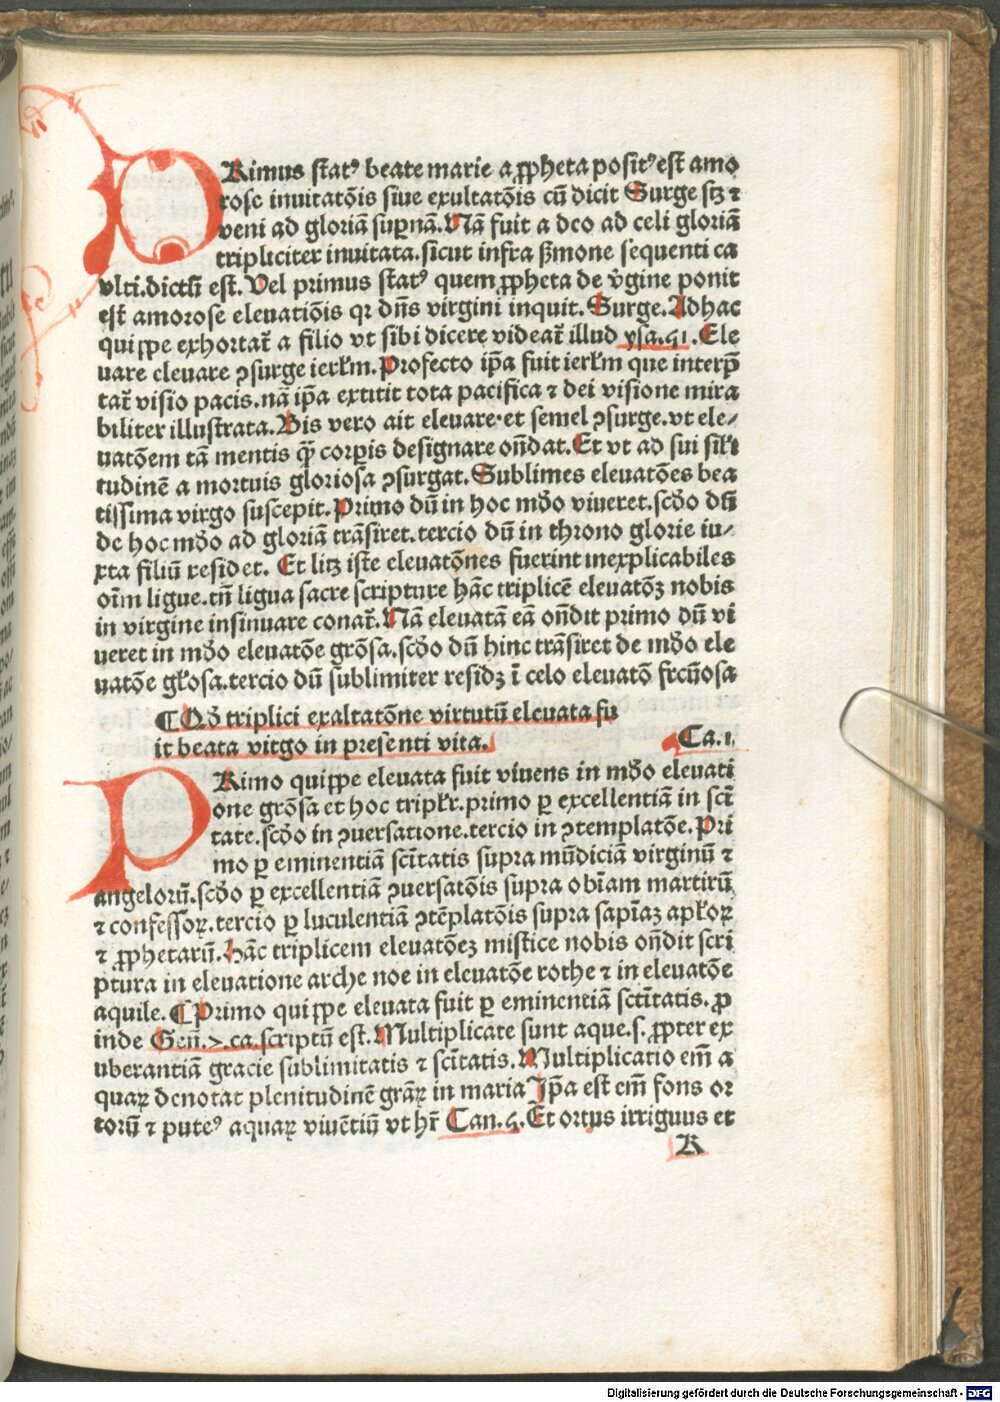 PRimus stat⁹ beate marie a ꝓpheta posit⁹ est amo
rose inuitatōis siue exultatōis cū dicit Surge scꝫ ⁊
veni ad gloriā supnā. Nā fuit a deo ad celi gloriā
tripliciter inuitata. sicut infra ßmone sequenti ca
vlti. dictū est. Vel primus stat⁹ quem ꝓpheta de v̄gine ponit
est amorose eleuatiōis qꝛ dn̄s virgini inquit. Surge. Adhac
quippe exhortat̄ a filio vt sibi dicere videat̄ illud ysa. 51. Ele
uare eleuare ꝯsurge ierłm. Profecto ip̄a fuit ierłm que interp̄
tat̄ visio pacis. nā ip̄a extitit tota pacifica ⁊ dei visione mira
biliter illustrata. Bis vero ait eleuare· et semel ꝯsurge. vt ele⸗
uatōem tā mentis q̄ꝫ corꝑis designare on̄dat. Et vt ad sui siłi
tudinē a mortuis gloriosa ꝯsurgat. Sublimes eleuatōes bea
tissima virgo suscepit. Primo dū in hoc mūdo viueret. scd̄o dū
de hoc mūdo ad gloriā trāsiret. tercio dū in throno glorie iu⸗
xta filiū residet. Et licꝫ iste eleuatōnes fuerint inexplicabiles
oīm ligue. tn̄ ligua sacre scripture hāc triplicē eleuatōꝫ nobis
in virgine insinuare conat̄. Nā eleuatā eā on̄dit primo dū vi
ueret in mūdo eleuatōe grōsa. scd̄o dū hinc trāsiret de mūdo ele
uatōe głosa. tercio dū sublimiter residꝫ ī celo eleuatō frcn̄osa
¶ Qd̄ triplici exaltatōne virtutū eleuata fu
it beata virgo in presenti vita. Ca. 1.
PRimo quippe eleuata fuit viuens in mūdo eleuati
one grōsa et hoc tripłr. primo ꝑ excellentiā in scī
tate. scd̄o in ꝯuersatione. tercio in ꝯtemplatōe. Pri
mo ꝑ eminentiā scītatis supra mūdiciā virginū ⁊
angelorū. scd̄o ꝑ excellentiā ꝯuersatōis supra ob̄iam martirū
⁊ confessoꝝ. tercio ꝑ luculentiā ꝯtēplatōis supra sapīaꝫ apłoꝝ
⁊ ꝓphetarū. Hāc triplicem eleuatōeꝫ mistice nobis on̄dit scri
ptura in eleuatione arche noe in eleuatōe rothe ⁊ in eleuatōe
aquile. ¶ Primo quippe eleuata fuit ꝑ eminentiā sctītatis. ꝓ
inde Gen̄. 7. ca. scriptū est. Multiplicate sunt aque. s. ꝓpter ex
uberantiā gracie sublimitatis ⁊ scītatis. Multiplicatio em̄ a
quaꝝ denotat plenitudinē grāꝝ in maria Ip̄a est em̄ fons or
torū ⁊ pute⁹ aquaꝝ viuētiū vt hr̄ Can. 5. Et ortus irriguus et
K
Digitalisierung gefördert durch die Deutsche Forschungsgemeinschaft - DFG